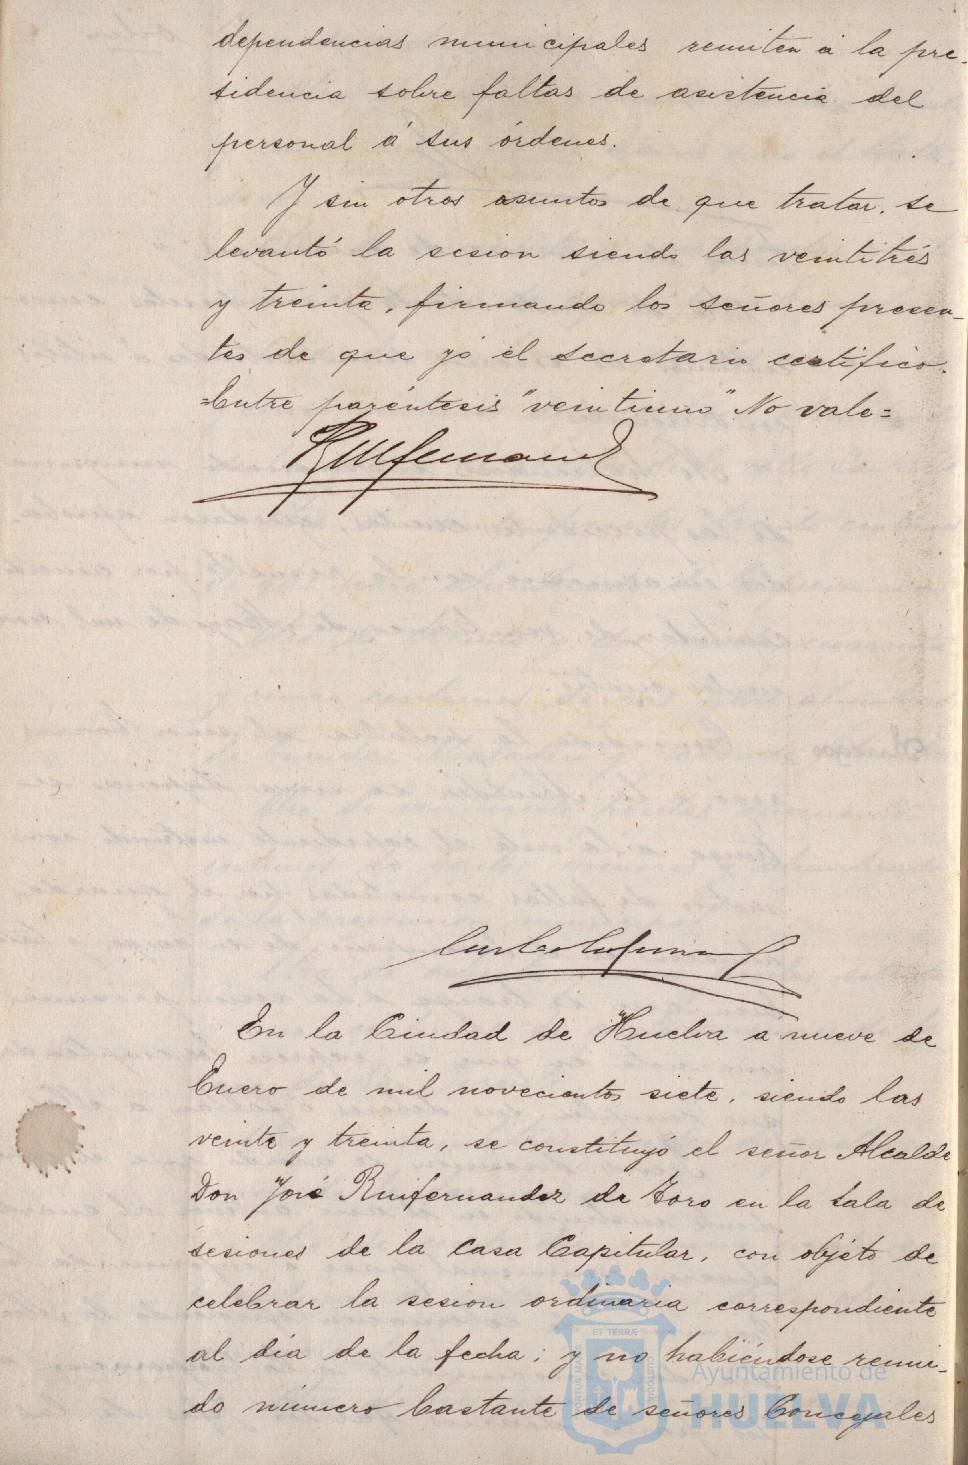 dependencias municipales remiten á la pre-
sidencia sobre faltas de asistencia del
personal á sus órdenes.
Y sin otros asuntos de que tratar, se
levantó la sesion siendo las veintitrés
y treinta, firmando los señores presen-
tes de que yó el secretario certifico.
=Entre paréntesis "veintiuno" No vale=
En la Ciudad de Huelva a nueve de
Enero de mil novecientos siete, siendo las
veinte y treinta, se constituyó el señor Alcalde
Don José Ruifernandez de Toro en la sala de
sesiones de la Casa Capitular, con objéto de
celebrar la sesion ordinaria correspondiente
al dia de la fecha; y no habiéndose reuni-
do número bastante de señores Concejales
Ayuntamiento de
HUELVA